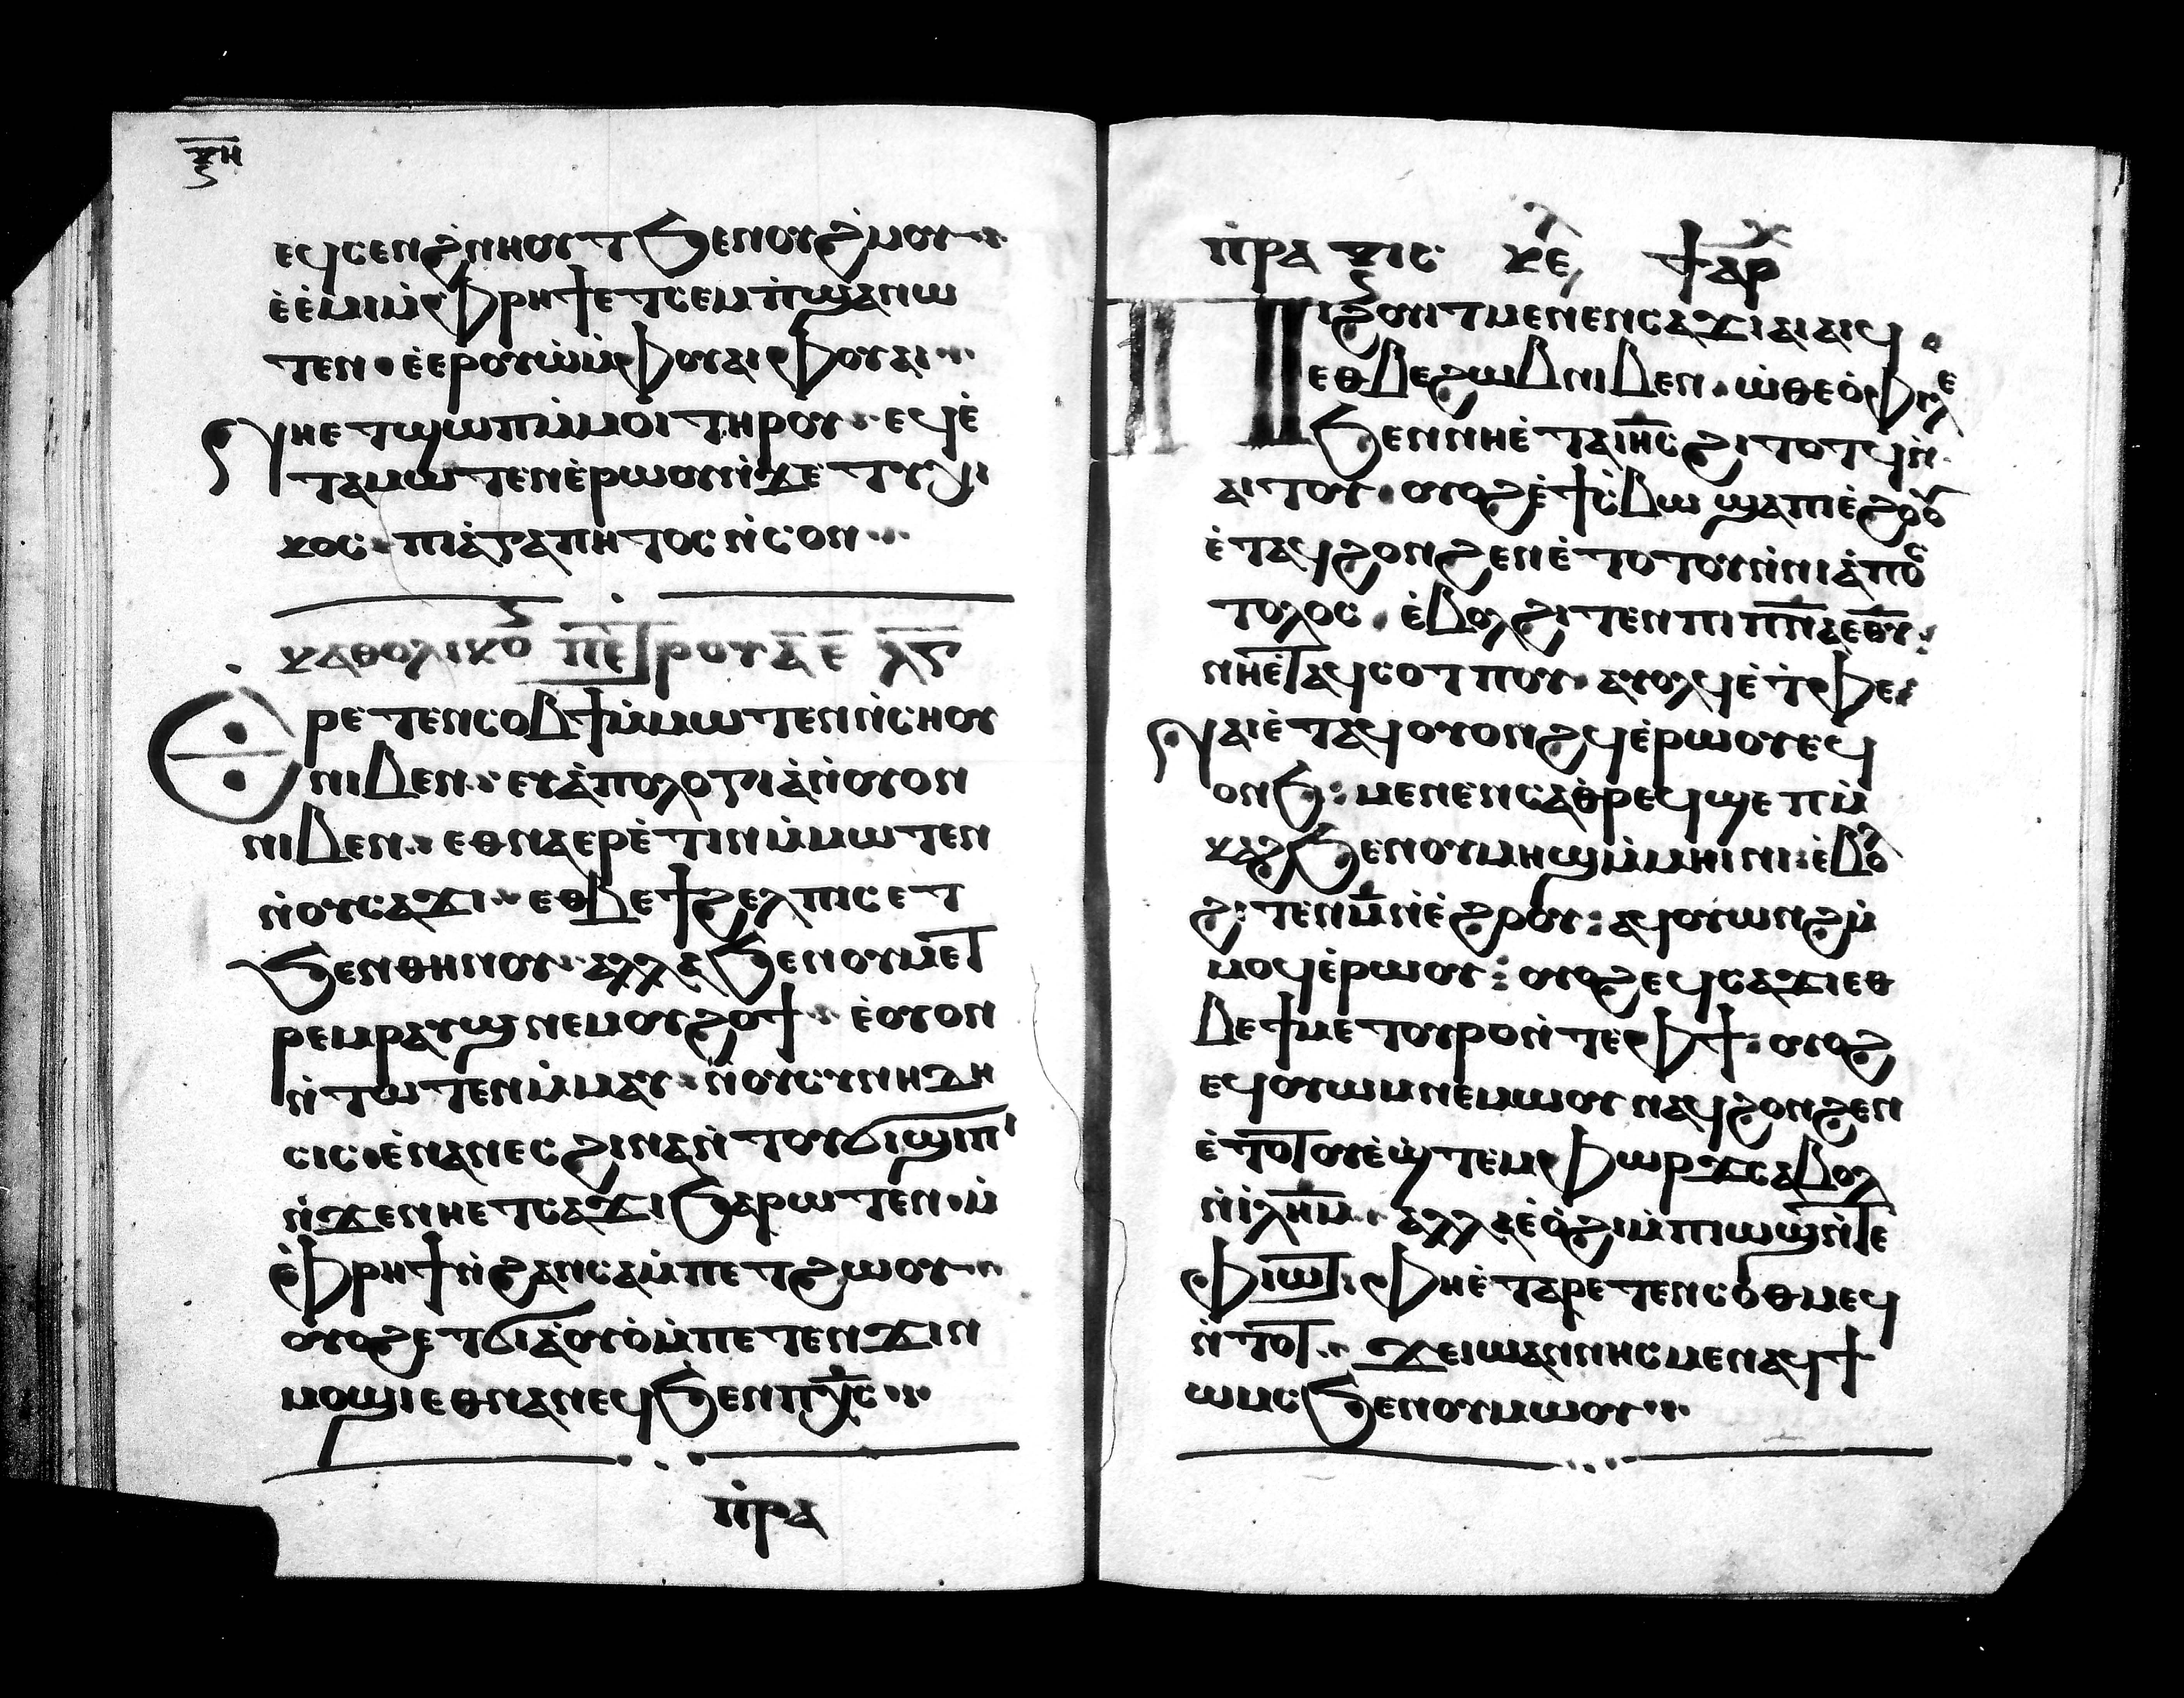 ⲕⲏ
ⲉϥⲥⲉⲛϩⲛⲏⲟⲩⲧ ϧⲉⲛⲟⲩϩⲙⲟⲩ
ⲉ̇ⲉ̇ⲙⲓⲙ̇ⲫⲣⲏϯⲉⲧⲥⲉⲙⲡ̇ϣⲁⲛⲱ
ⲧⲉⲛ · ⲉ̇ⲉⲣⲟⲩⲱ̇ⲙ̇ⲫⲟⲩⲁⲓⲫⲟⲩⲁⲓ
ⲛⲏⲉⲧϣⲱⲡⲙ̇ⲙⲟⲓ ⲧⲏⲣⲟⲩ · ⲉϥⲉ̇
ⲧⲁⲙⲱⲧⲉⲛⲉ̇ⲣⲱⲟⲩⲛ̇ϫⲉ ⲧⲩⲭⲓ
ⲕⲟⲥ · ⲡⲓⲁ̇ⲅⲁⲡⲏⲧⲟⲥ ⲛ̇ⲥⲟⲛ
ⲕⲁⲑⲟⲗⲓⲕⲟ ⲡⲉⲧⲣⲟⲩ ⲁ̅ ⲉ̅ ⲗ̅ⲋ̅
Ⲉⲣⲉⲧⲉⲛⲥⲟⲃϯⲙ̇ⲙⲱⲧⲉⲛⲛ̇ⲥⲏⲟⲩ
ⲛⲓⲃⲉⲛ · ⲉⲩⲁ̇ⲡⲟⲗⲟⲅⲓⲁ̇ⲛ̇ⲟⲩⲟⲛ
ⲛⲓⲃⲉⲛ · ⲉⲑⲛⲁⲉⲣⲉ̇ⲧⲓⲛ ⲙ̇ⲙⲱⲧⲉⲛ
ⲛ̇ⲟⲩⲥⲁϫⲓ · ⲉⲑⲃⲉϯϩⲉⲗⲡⲓⲥ ⲉⲧ
ϧⲉⲛⲑⲏⲛⲟⲩ · ⲁⲗⲗⲁ ϧⲉⲛⲟⲩⲙⲉⲧ
ⲣⲉⲙⲣⲁⲩϣ ⲛⲉⲙⲟⲩϩⲟϯ · ⲉ̇ⲟⲩⲟⲛ
ⲛ̇ⲧⲱⲧⲉⲛⲙ̇ⲙⲁⲩ · ⲛ̇ⲟⲩⲥⲩⲛⲏⲇⲏ
ⲥⲓⲥ · ⲉ̇ⲛⲁⲛⲉⲥ ϩⲓⲛⲁⲛ̇ⲧⲟⲩϭⲓϣⲓⲡⲓ
ⲛ̇ϫⲉⲛⲏⲉⲧⲥⲁϫⲓ ϧⲁⲣⲱⲧⲉⲛ · ⲙ̇
ⲫⲣⲏϯⲛ̇ϩⲁⲛⲥⲁⲙ̇ⲡⲉⲧϩⲱⲟⲩ
ⲟⲩⲟϩ ⲉⲧϭⲓⲁ̇ⲟⲩⲟ̇ⲙ̇ⲡⲉⲧⲉⲛϫⲓⲛ
ⲙⲟϣⲓⲉⲑⲛⲁⲛⲉϥ ϧⲉⲛⲡⲭ̅ⲥ
ⲡ̇ⲣⲁ
ⲡ̇ⲣⲁⲝⲓⲥ ⲕⲉⲫ ϯⲁⲣⲭ
Ⲡⲓϩⲟⲩⲓⲧ ⲙⲉⲛⲉⲛⲥⲁϫⲓ ⲁⲓⲁⲓϥ ·
ⲉⲑⲃⲉϩⲱⲃ ⲛⲓⲃⲉⲛ · ⲱ̇ⲑⲉⲟ̇ⲫⲓⲗⲉ
ϧⲉⲛⲛⲏⲉ̇ⲧⲁⲓⲏ̅ⲥ ϩⲓⲧⲟⲧϥ ⲛ̇
ⲁⲓⲧⲟⲩ · ⲟⲩⲟϩⲉ̇ϯⲥ̇ⲃⲱ ϣⲁⲡⲓⲉ̇ϩⲟⲟⲩ
ⲉ̇ⲧⲁϥϩⲟⲛϩⲉⲛⲉ̇ⲧⲟⲧⲟⲩⲛ̇ⲛⲓⲁ̇ⲡⲟⲥ
ⲧⲟⲗⲟⲥ · ⲉ̇ⲃⲟⲗϩⲓⲧⲉⲛ ⲡⲓⲡ̅ⲛ̅ⲁ̅ⲉ̅ⲑ̅ⲩ̅
ⲛⲏⲉ̇ⲧⲁϥⲥⲟⲧⲡⲟⲩ · ⲁⲩⲟⲗϥ ⲉ̇ⲧ̇ⲫⲉ
ⲛⲁⲓⲉ̇ⲧⲁϥⲟⲩⲟⲛϩϥ ⲉ̇ⲣⲱⲟⲩ ⲉϥ
ⲟⲛϧ : ⲙⲉⲛⲉⲛⲥⲁⲑ̇ⲣⲉϥϣⲉⲡⲙ̇
ⲕⲁϩ ϧⲉⲛⲟⲩⲙⲏϣⲙ̇ⲙⲏⲓⲛⲓ : ⲉ̇ⲃⲟⲗ
ϩⲓⲧⲉⲛⲙ̅ⲛ̇ⲉ̇ϩⲟⲟⲩ : ⲁϥⲟⲩⲱⲛϩⲙ̇
ⲙⲟϥⲉ̇ⲣⲱⲟⲩ : ⲟⲩⲟϩ ⲉϥⲥⲁϫⲓ ⲉⲑ
ⲃⲉϯⲙⲉⲧⲟⲩⲣⲟⲛ̇ⲧⲉⲫϯ : ⲟⲩⲟϩ
ⲉϥⲟⲩⲱⲙⲛⲉⲙⲱⲟⲩ ⲛⲁϥϩⲟⲛϩⲉⲛ
ⲉ̇ⲧⲟⲧⲟⲩⲉ̇ϣ̇ⲧⲉⲙⲫⲱⲣϫⲥⲁⲃⲟⲗ
ⲛ̇ⲓⲗ̅ⲏ̅ⲙ̅ · ⲁⲗⲗⲁⲉ̇ⲟ̇ϩⲓⲙ̇ⲡⲓⲱϣⲛ̇ⲧⲉ
ⲫⲓⲱⲧ · ⲫⲏⲉ̇ⲧⲁⲣⲉⲧⲉⲛⲥⲟⲑⲙⲉϥ
ⲛ̇ⲧⲟⲧ · ϫⲉⲓⲱⲁⲛⲛⲏⲥ ⲙⲉⲛⲁϥϯ
ⲱⲙⲥ ϧⲉⲛⲟⲩⲙⲱⲟⲩ